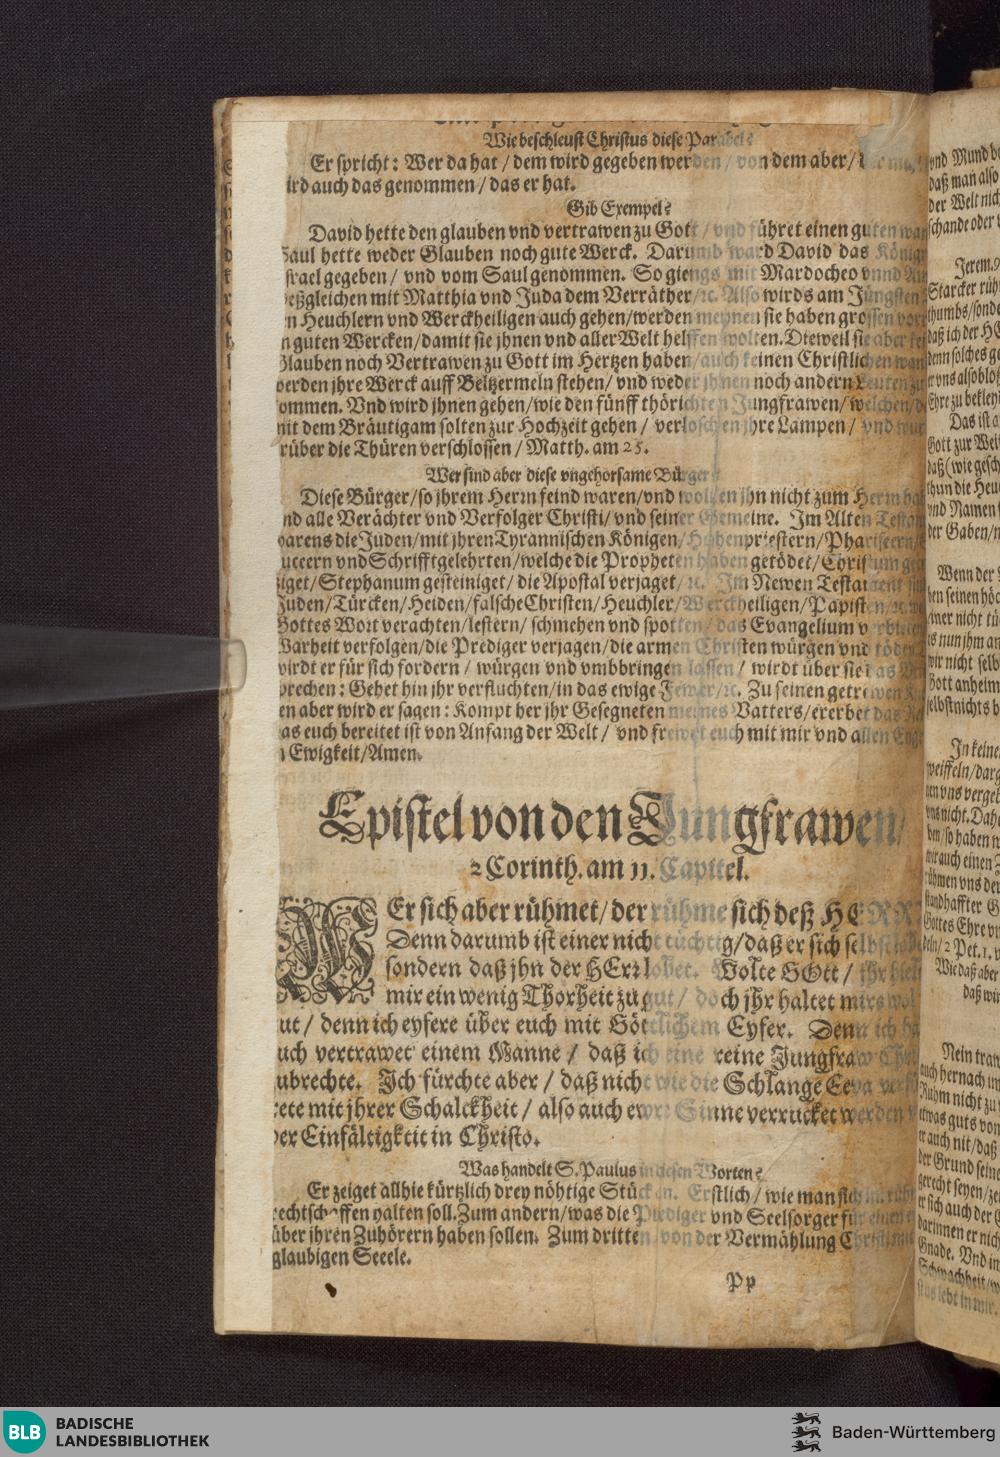 Wie beschleust Christus diese Parabel?
Er spricht: Wer da hat / dem wird gegeben werden / von dem aber /
ird auch das genommen / das er hat.
Gib Exempel?
David hette den glauben vnd vertrawen zu Gott / vnd führet einen guten
Saul hette weder Glauben noch gute Werck. Darumb ward David das König
srael gegeben / vnd vom Saul genommen. So giengs mit Mardocheo vnnd
eßgleichen mit Matthia vnd Juda dem Verräther / ꝛc. Also wirds am Jüngsten
n Heuchlern vnd Werckheiligen auch gehen/werden meynen sie haben grossen
n guten Wercken/damit sie jhnen vnd aller Welt helffen wolten. Dieweil sie aber
Glauben noch Vertrawen zu Gott im Hertzen haben/auch keinen Christlichen
werden jhre Werck auff Beltzermeln stehen/ vnd weder jhnen noch andern Leuten
ommen. Vnd wird jhnen gehen/wie den fünff thörichten Jungfrawen/welchen/
mit dem Bräutigam solten zur Hochzeit gehen / verloschen jhre Lampen / vnd
rüber die Thüren verschlossen / Matth. am 25.
Wer sind aber diese vngehorsame Bürger
Diese Bürger/so jhrem Herrn feind waren/vnd wolten jhn nicht zum Herrn
nd alle Verächter vnd Verfolger Christi/vnd seiner Gemeine. Im Alten
warens die Juden/mit jhren Tyrannischen Königen/Hohenpriestern/Phariseern/
uceern vnd Schrifftgelehrten/welche die Propheten haben getödet/Christum
iget/Stephanum gesteiniget/ die Apostal verjaget/ ꝛc. Im Newen Testament
Juden/Türcken/Heiden/falsche Christen/Heuchler/Werckheiligen/Papisten/
Gottes Wort verachten/lestern/ schmehen vnd spotten/ das Evangelium
Warheit verfolgen/die Prediger verjagen/die armen Christen würgen vnd
wirdt er für sich fordern / würgen vnd vmbbringen lassen / wirdt über sie das
prechen: Gehet hin jhr verfluchten/in das ewige Fewer/ꝛc. Zu seinen getrewen
en aber wird er sagen: Kompt her jhr Gesegneten meines Vatters/ererbet das
as euch bereitet ist von Anfang der Welt / vnd frewet euch mit mir vnd allen
n Ewigkeit/Amen.
Epistel von den Jungfrawen /
2 Corinth. am 11. Capitel.
WEr sich aber rühmet/der rühme sich deß HERR
Denn darumb ist einer nicht tüchtig/daß er sich selbst
sondern daß jhn der HErr lobet. Wolte GOtt /
mir ein wenig Thorheit zu gut / doch jhr haltet mirs
ut / denn ich eyfere über euch mit Göttlichem Eyfer. Denn ich
uch vertrawet einem Manne / daß ich eine reine Jungfraw
ubrechte. Ich fürchte aber / daß nicht wie die Schlange Eeva
rete mit jhrer Schalckheit / also auch ewre Sinne verrucket werden
der Einfältigkeit in Christo.
Was handelt S. Paulus in diesen Worten?
Er zeiget allhie kürtzlich drey nöhtige Stück an. Erstlich / wie man sich
rechtschaffen halten soll. Zum andern/was die Prediger vnd Seelsorger für
über ihren Zuhörern haben sollen. Zum dritten von der Vermählung
glaubigen Seele.
Pp
vnd Mund
daß man also
der Welt nich
schande oder
Jerem. 9
Starcker rüh
thumbs/sonde
daß ich der
denn solches
Ehre zu bekley
Das ist
Gott zur Welt
daß (wie gesch
thun die Heu
vnd Namen
der Gaben/
Wenn der
ben seinen
einer nicht tü
es nun jhm an
wir nicht selb
Gott anheim
selbst nichts
In keine
weiffeln/
nen vns vergeb
vns nicht. Dah
ben/so haben
wir auch einen
rühmen vns der
standhaffter
Gottes Ehre
deln/2 Pet. 1.
Wie daß aber
daß wir
Nein
auch hernach im
Ruhm nicht zu
etwas guts von
er auch nit/daß
der Grund seine
gerecht seyen/
er sich auch der
darinnen er nich
Gnade. Vnd in
Schwachheit/
stus lebt in mir.
BLB BADISCHE
LANDESBIBLIOTHEK
Baden-Württemberg